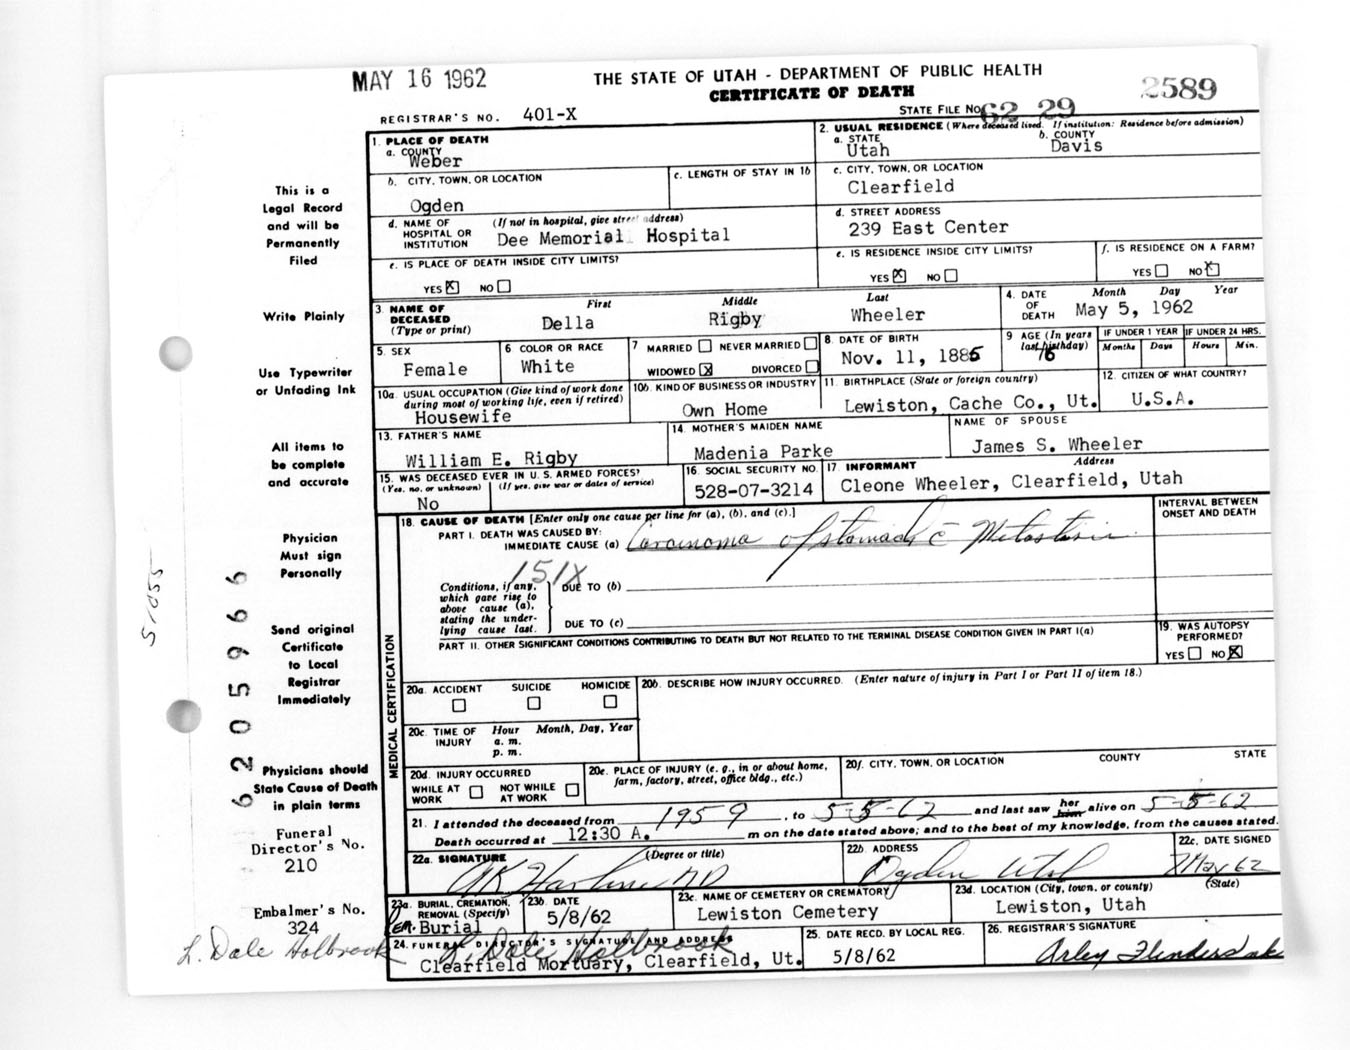 MAY 16 1962
THE STATE OF UTAH - DEPARTMENT OF PUBLIC HEALTH
CERTIFICATE OF DEATH
2589
REGISTRAR'S NO. 401-X
STATE FILE NO. 62 29
1. PLACE OF DEATH
a. COUNTY
Weber
2. USUAL RESIDENCE (Where deceased lived. If institution: Residence before admission)
a. STATE
Utah
b. COUNTY
Davis
b. CITY, TOWN, OR LOCATION
Ogden
c. LENGTH OF STAY IN 1b
c. CITY, TOWN, OR LOCATION
Clearfield
d. NAME OF HOSPITAL OR INSTITUTION
(If not in hospital, give street address)
Dee Memorial Hospital
d. STREET ADDRESS
239 East Center
e. IS PLACE OF DEATH INSIDE CITY LIMITS?
YES X NO
e. IS RESIDENCE INSIDE CITY LIMITS?
YES X NO
f. IS RESIDENCE ON A FARM?
YES NO X
3. NAME OF DECEASED
(Type or print)
First Middle Last
Della Rigby Wheeler
4. DATE OF DEATH
Month Day Year
May 5, 1962
5. SEX
Female
6 COLOR OR RACE
White
7 MARRIED NEVER MARRIED
WIDOWED X DIVORCED
8. DATE OF BIRTH
Nov. 11, 1885
9 AGE (In years last birthday)
76
IF UNDER 1 YEAR
Months Days
IF UNDER 24 HRS.
Hours Min.
10a. USUAL OCCUPATION (Give kind of work done during most of working life, even if retired)
Housewife
10b. KIND OF BUSINESS OR INDUSTRY
Own Home
11. BIRTHPLACE (State or foreign country)
Lewiston, Cache Co., Ut.
12. CITIZEN OF WHAT COUNTRY?
U.S.A.
13. FATHER'S NAME
William E. Rigby
14. MOTHER'S MAIDEN NAME
Madenia Parke
NAME OF SPOUSE
James S. Wheeler
15. WAS DECEASED EVER IN U. S. ARMED FORCES?
(Yes, no, or unknown) (If yes, give war or dates of service)
No
16. SOCIAL SECURITY NO.
528-07-3214
17. INFORMANT Address
Cleone Wheeler, Clearfield, Utah
MEDICAL CERTIFICATION
18. CAUSE OF DEATH [Enter only one cause per line for (a), (b), and (c).]
PART I. DEATH WAS CAUSED BY:
IMMEDIATE CAUSE (a) Carcinoma of stomach c̄ Metastasis
INTERVAL BETWEEN ONSET AND DEATH
151X
Conditions, if any, which gave rise to above cause (a), stating the underlying cause last.
DUE TO (b)
DUE TO (c)
PART II. OTHER SIGNIFICANT CONDITIONS CONTRIBUTING TO DEATH BUT NOT RELATED TO THE TERMINAL DISEASE CONDITION GIVEN IN PART I(a)
19. WAS AUTOPSY PERFORMED?
YES NO X
20a. ACCIDENT SUICIDE HOMICIDE
20b. DESCRIBE HOW INJURY OCCURRED. (Enter nature of injury in Part I or Part II of item 18.)
20c. TIME OF INJURY
Hour Month, Day, Year
a. m.
p. m.
20d. INJURY OCCURRED
WHILE AT WORK NOT WHILE AT WORK
20e. PLACE OF INJURY (e. g., in or about home, farm, factory, street, office bldg., etc.)
20f. CITY, TOWN, OR LOCATION COUNTY STATE
21. I attended the deceased from 1959, to 5-5-62 and last saw her him alive on 5-5-62
Death occurred at 12:30 A. m on the date stated above; and to the best of my knowledge, from the causes stated.
22a. SIGNATURE (Degree or title)
22b. ADDRESS
Ogden Utah
22c. DATE SIGNED
7 May 62
23a. BURIAL, CREMATION, REMOVAL (Specify)
Burial
23b. DATE
5/8/62
23c. NAME OF CEMETERY OR CREMATORY
Lewiston Cemetery
23d. LOCATION (City, town, or county) (State)
Lewiston, Utah
24. FUNERAL DIRECTOR'S SIGNATURE AND ADDRESS
L. Dale Holbrook
Clearfield Mortuary, Clearfield, Ut.
25. DATE RECD. BY LOCAL REG.
5/8/62
26. REGISTRAR'S SIGNATURE
This is a
Legal Record
and will be
Permanently
Filed
Write Plainly
Use Typewriter
or Unfading Ink
All items to
be complete
and accurate
Physician
Must sign
Personally
Send original
Certificate
to Local
Registrar
Immediately
Physicians should
State Cause of Death
in plain terms
Funeral
Director's No.
210
Embalmer's No.
324
L. Dale Holbrook
62 05966